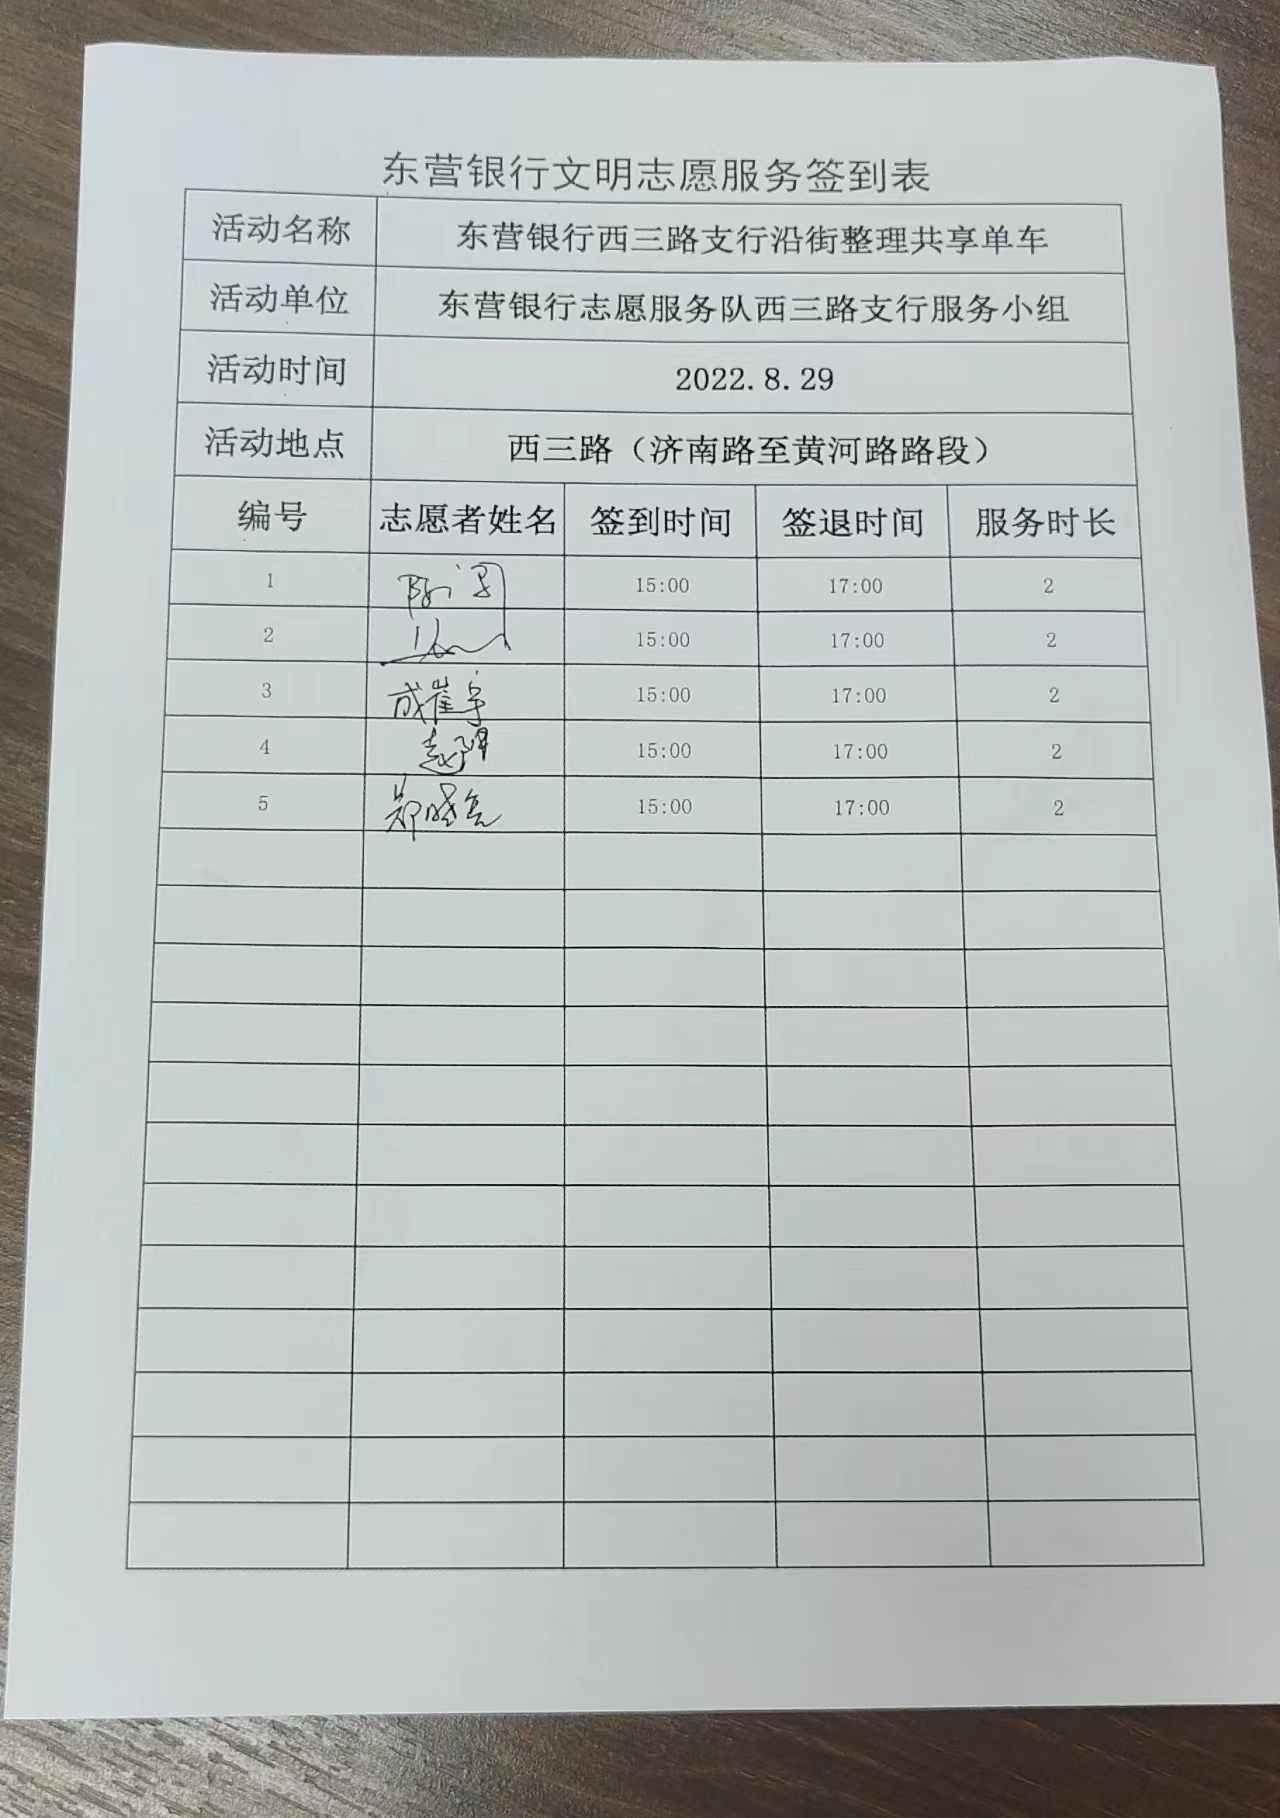 东营银行文明志愿服务签到表
活动名称 东营银行西三路支行沿街整理共享单车
活动单位 东营银行志愿服务队西三路支行服务小组
活动时间 2022.8.29
活动地点 西三路（济南路至黄河路路段）
编号 志愿者姓名 签到时间 签退时间 服务时长
1 15:00 17:00 2
2 15:00 17:00 2
3 成崔宇 15:00 17:00 2
4 15:00 17:00 2
5 15:00 17:00 2